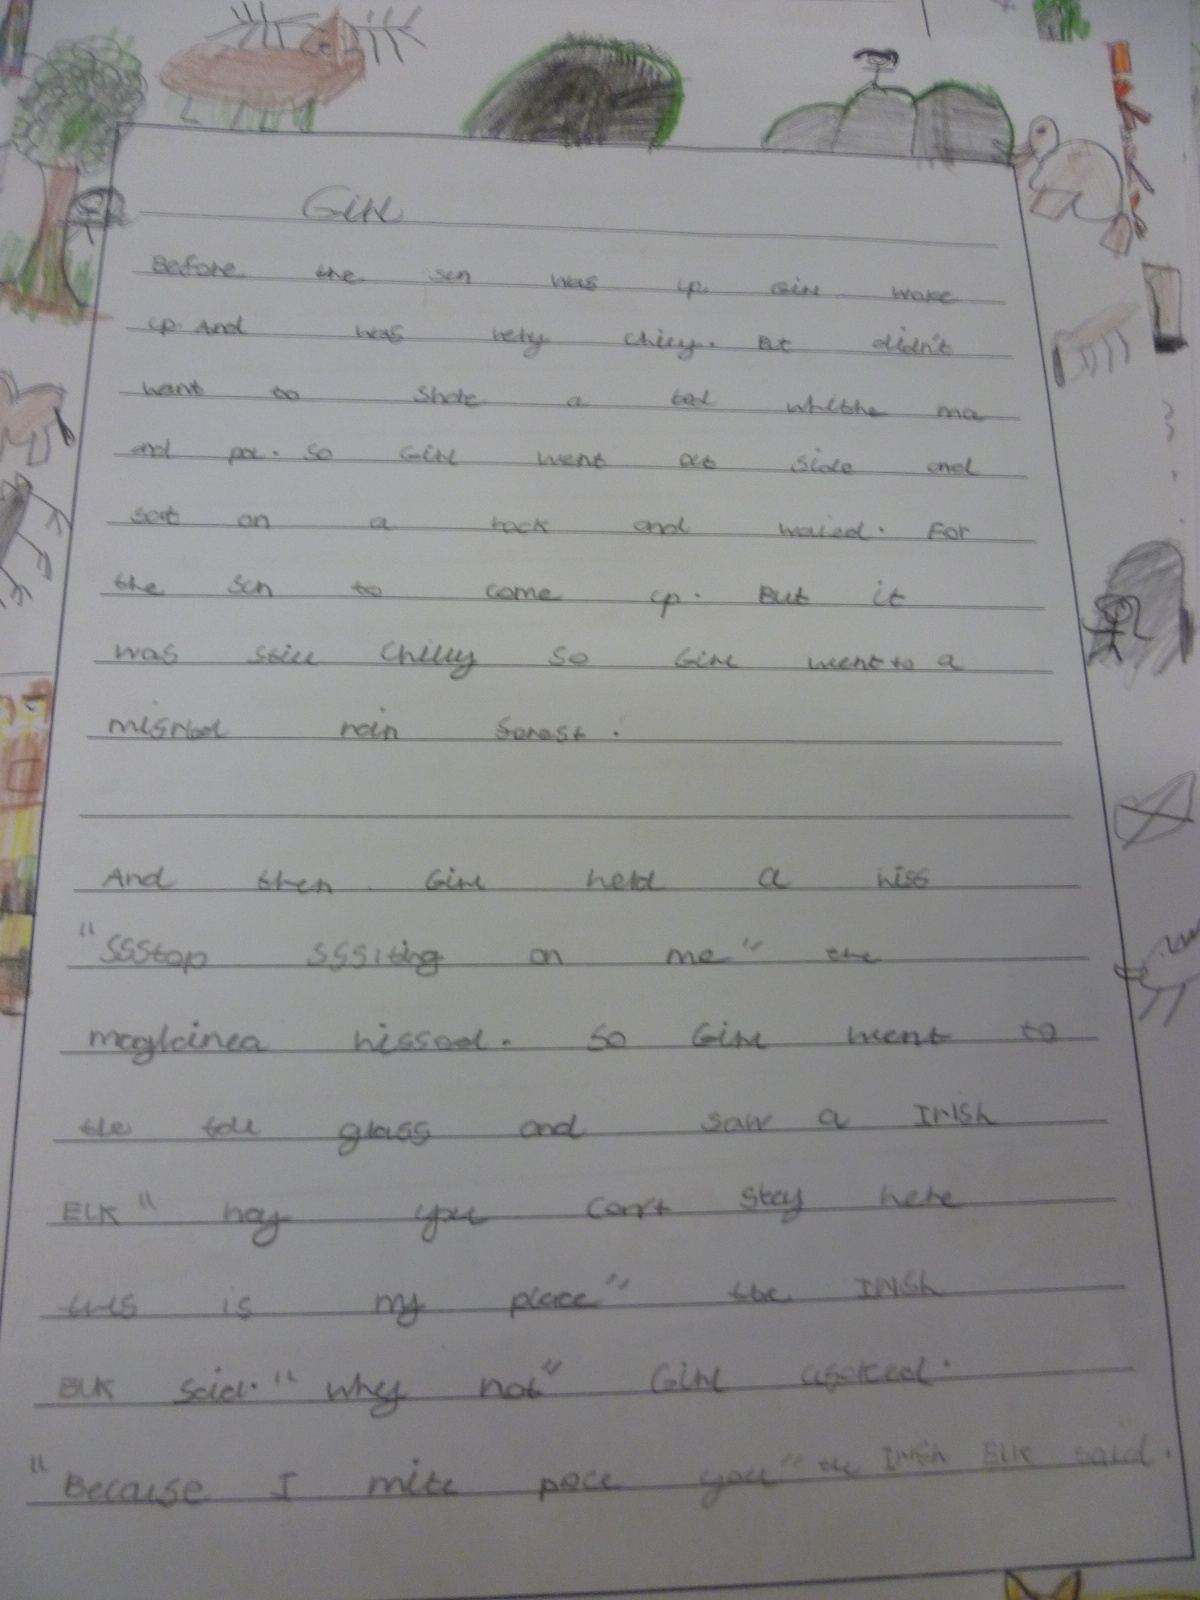 Girl
Before the sun was up. Girl woke
up. And was very chilly. But didn't
want to shate a bed whithe ma
and pa. So Girl went out side and
sat on a rock and waied. For
the sun to come up. But it
was still chilly so Girl went to a
rain forest.
And then Girl held a hiss
"SSStop SSSiting on me" the
hissed. So Girl went to
the tall glass and saw a IrISh
ELK " hay you can't stay here
this is my place" the IrISh
ELK said. " why not" Girl ascked.
"Because I mite poce you" the IrISh ELK said.